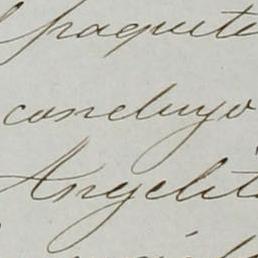 paquete
concluyo
Angelita